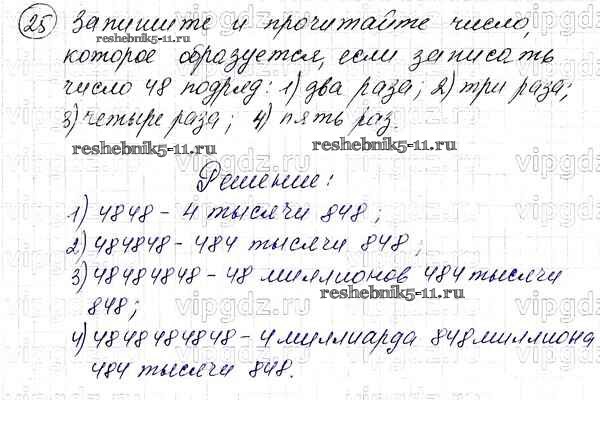 25 Запишите и прочитайте число,
которое образуется, если записать
число 48 подряд: 1) два раза; 2) три раза;
3) четыре раза; 4) пять раз.
Решение:
1) 4848 - 4 тысячи 848;
2) 484848 - 484 тысячи 848;
3) 48484848 - 48 миллионов 484 тысячи
848;
4) 4848484848 - 4 миллиарда 848 миллиона
484 тысячи 848.
reshebnik5-11.ru
reshebnik5-11.ru
reshebnik5-11.ru
reshebnik5-11.ru
vipgdz.ru